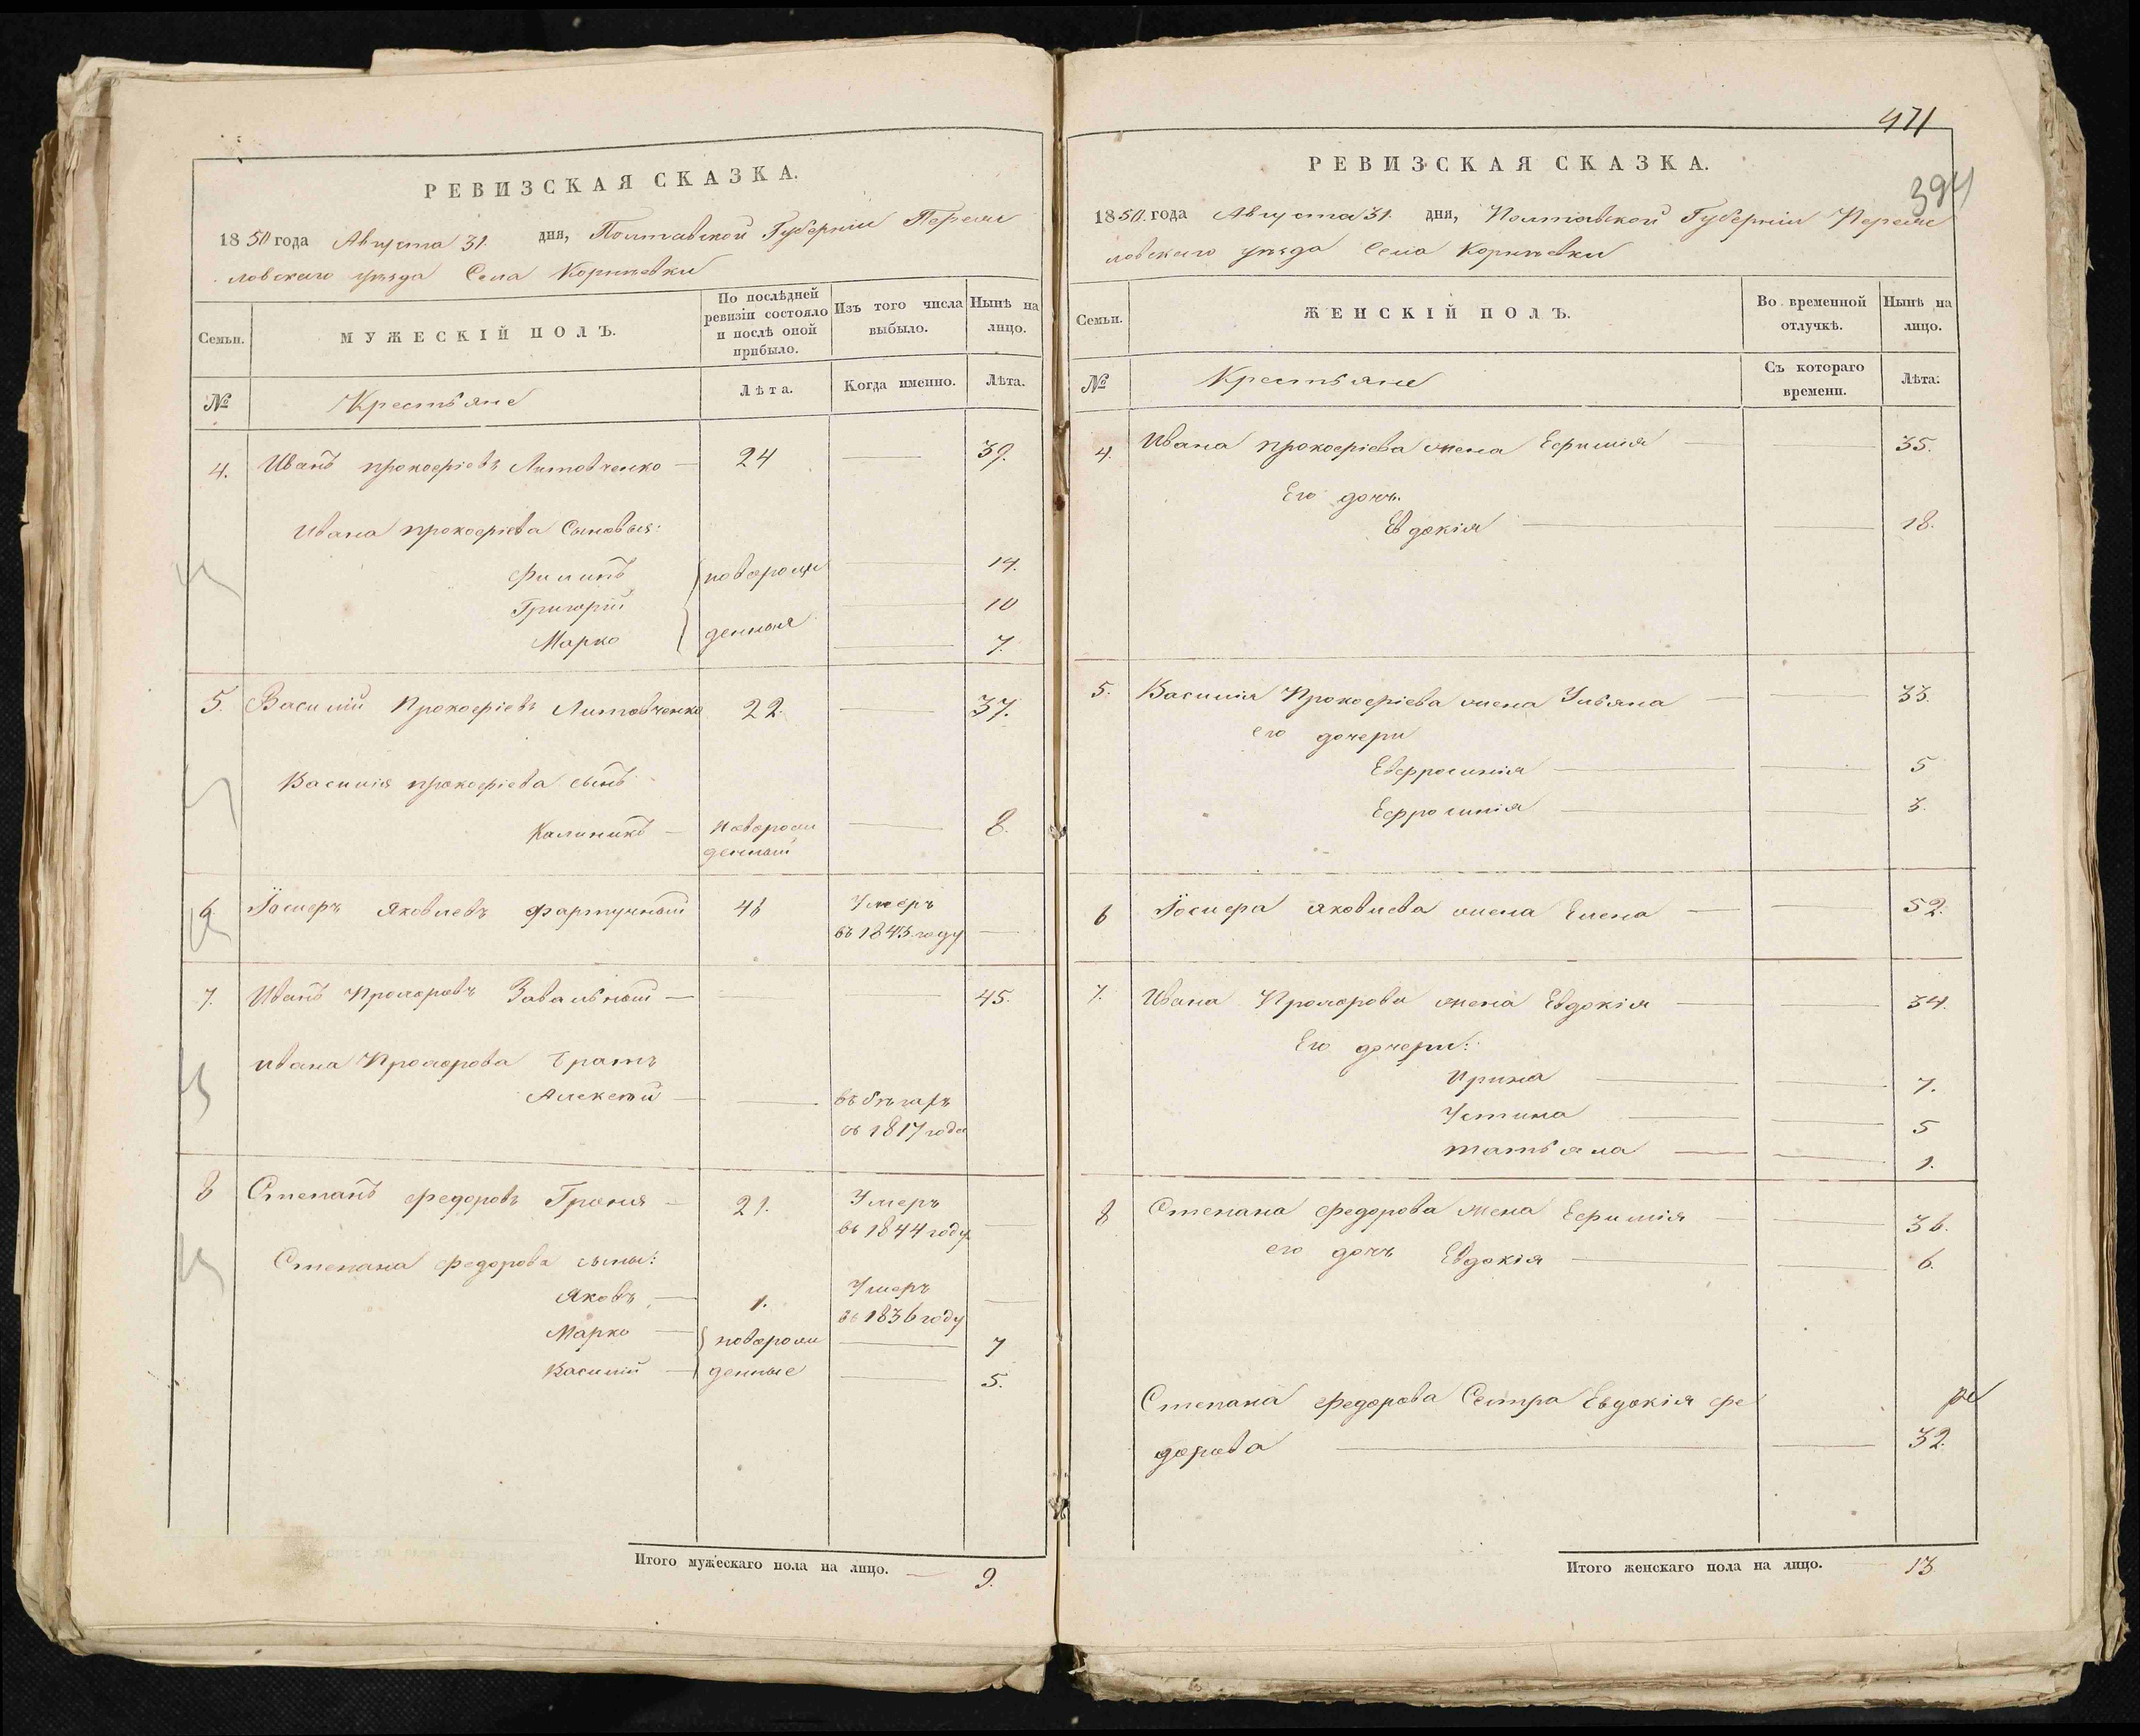 РЕВИЗСКАЯ СКАЗКА.
1850 года Августа 31. дня, Полтавской Губерніи Переяс
ловскаго уѣзда Села Корнѣевки
Семьи.
МУЖЕСКІЙ ПОЛЪ.
По послѣдней
ревизіи состояло
и послѣ оной
прибыло.
Изъ того числа
выбыло.
Нынѣ на
лицо.
№
Крестьяне
Лѣта.
Когда именно.
Лѣта.
4. Иванъ Прокофіевъ Литовченко 24 39.
Ивана Прокофіева Сыновья:
Филипъ новорож 14.
Григорій 10
Марко денныя 7.
5. Василій Прокофіевъ Литовченко 22. 37.
Василія Прокофіева сынъ
Калиникъ новорож 8.
денный
6 Іосифъ Яковлевъ Фартушный 46 Умеръ
въ 1843 году
7. Иванъ Прохоровъ Завальный 45.
Ивана Прохорова братъ
Алексѣй въ бѣгахъ
съ 1817 года
8 Степанъ Федоровъ 21. Умеръ
въ 1844 году
Степана Федорова сыны:
Яковъ 1. Умеръ
въ 1836 году
Марко новорож 7
Василій денные 5.
Итого мужескаго пола на лицо. 9.
471
394
РЕВИЗСКАЯ СКАЗКА.
1850. года Августа 31. дня, Полтавской Губерніи Переяс
ловскаго уѣзда Села Корнѣевки
Семьи.
ЖЕНСКІЙ ПОЛЪ.
Во временной
отлучкѣ.
Нынѣ на
лицо.
№
Крестьяне
Съ котораго
времени.
Лѣта.
4. Ивана Прокофіева жена Ефимія 35.
Его дочь.
Евдокія 18.
5. Василія Прокофіева жена Ульяна 33.
его дочери
Евфросинія 5
Ефросинія 3.
6 Іосифа Яковлева жена Елена 52.
7. Ивана Прохорова жена Евдокія 34.
Его дочери:
Ирина 7.
Устина 5
Татьяна 1.
8 Степана Федорова жена Ефимія 36.
его дочь Евдокія 6.
Степана Федорова Сестра Евдокія Фе
дорова 32.
Итого женскаго пола на лицо. 13